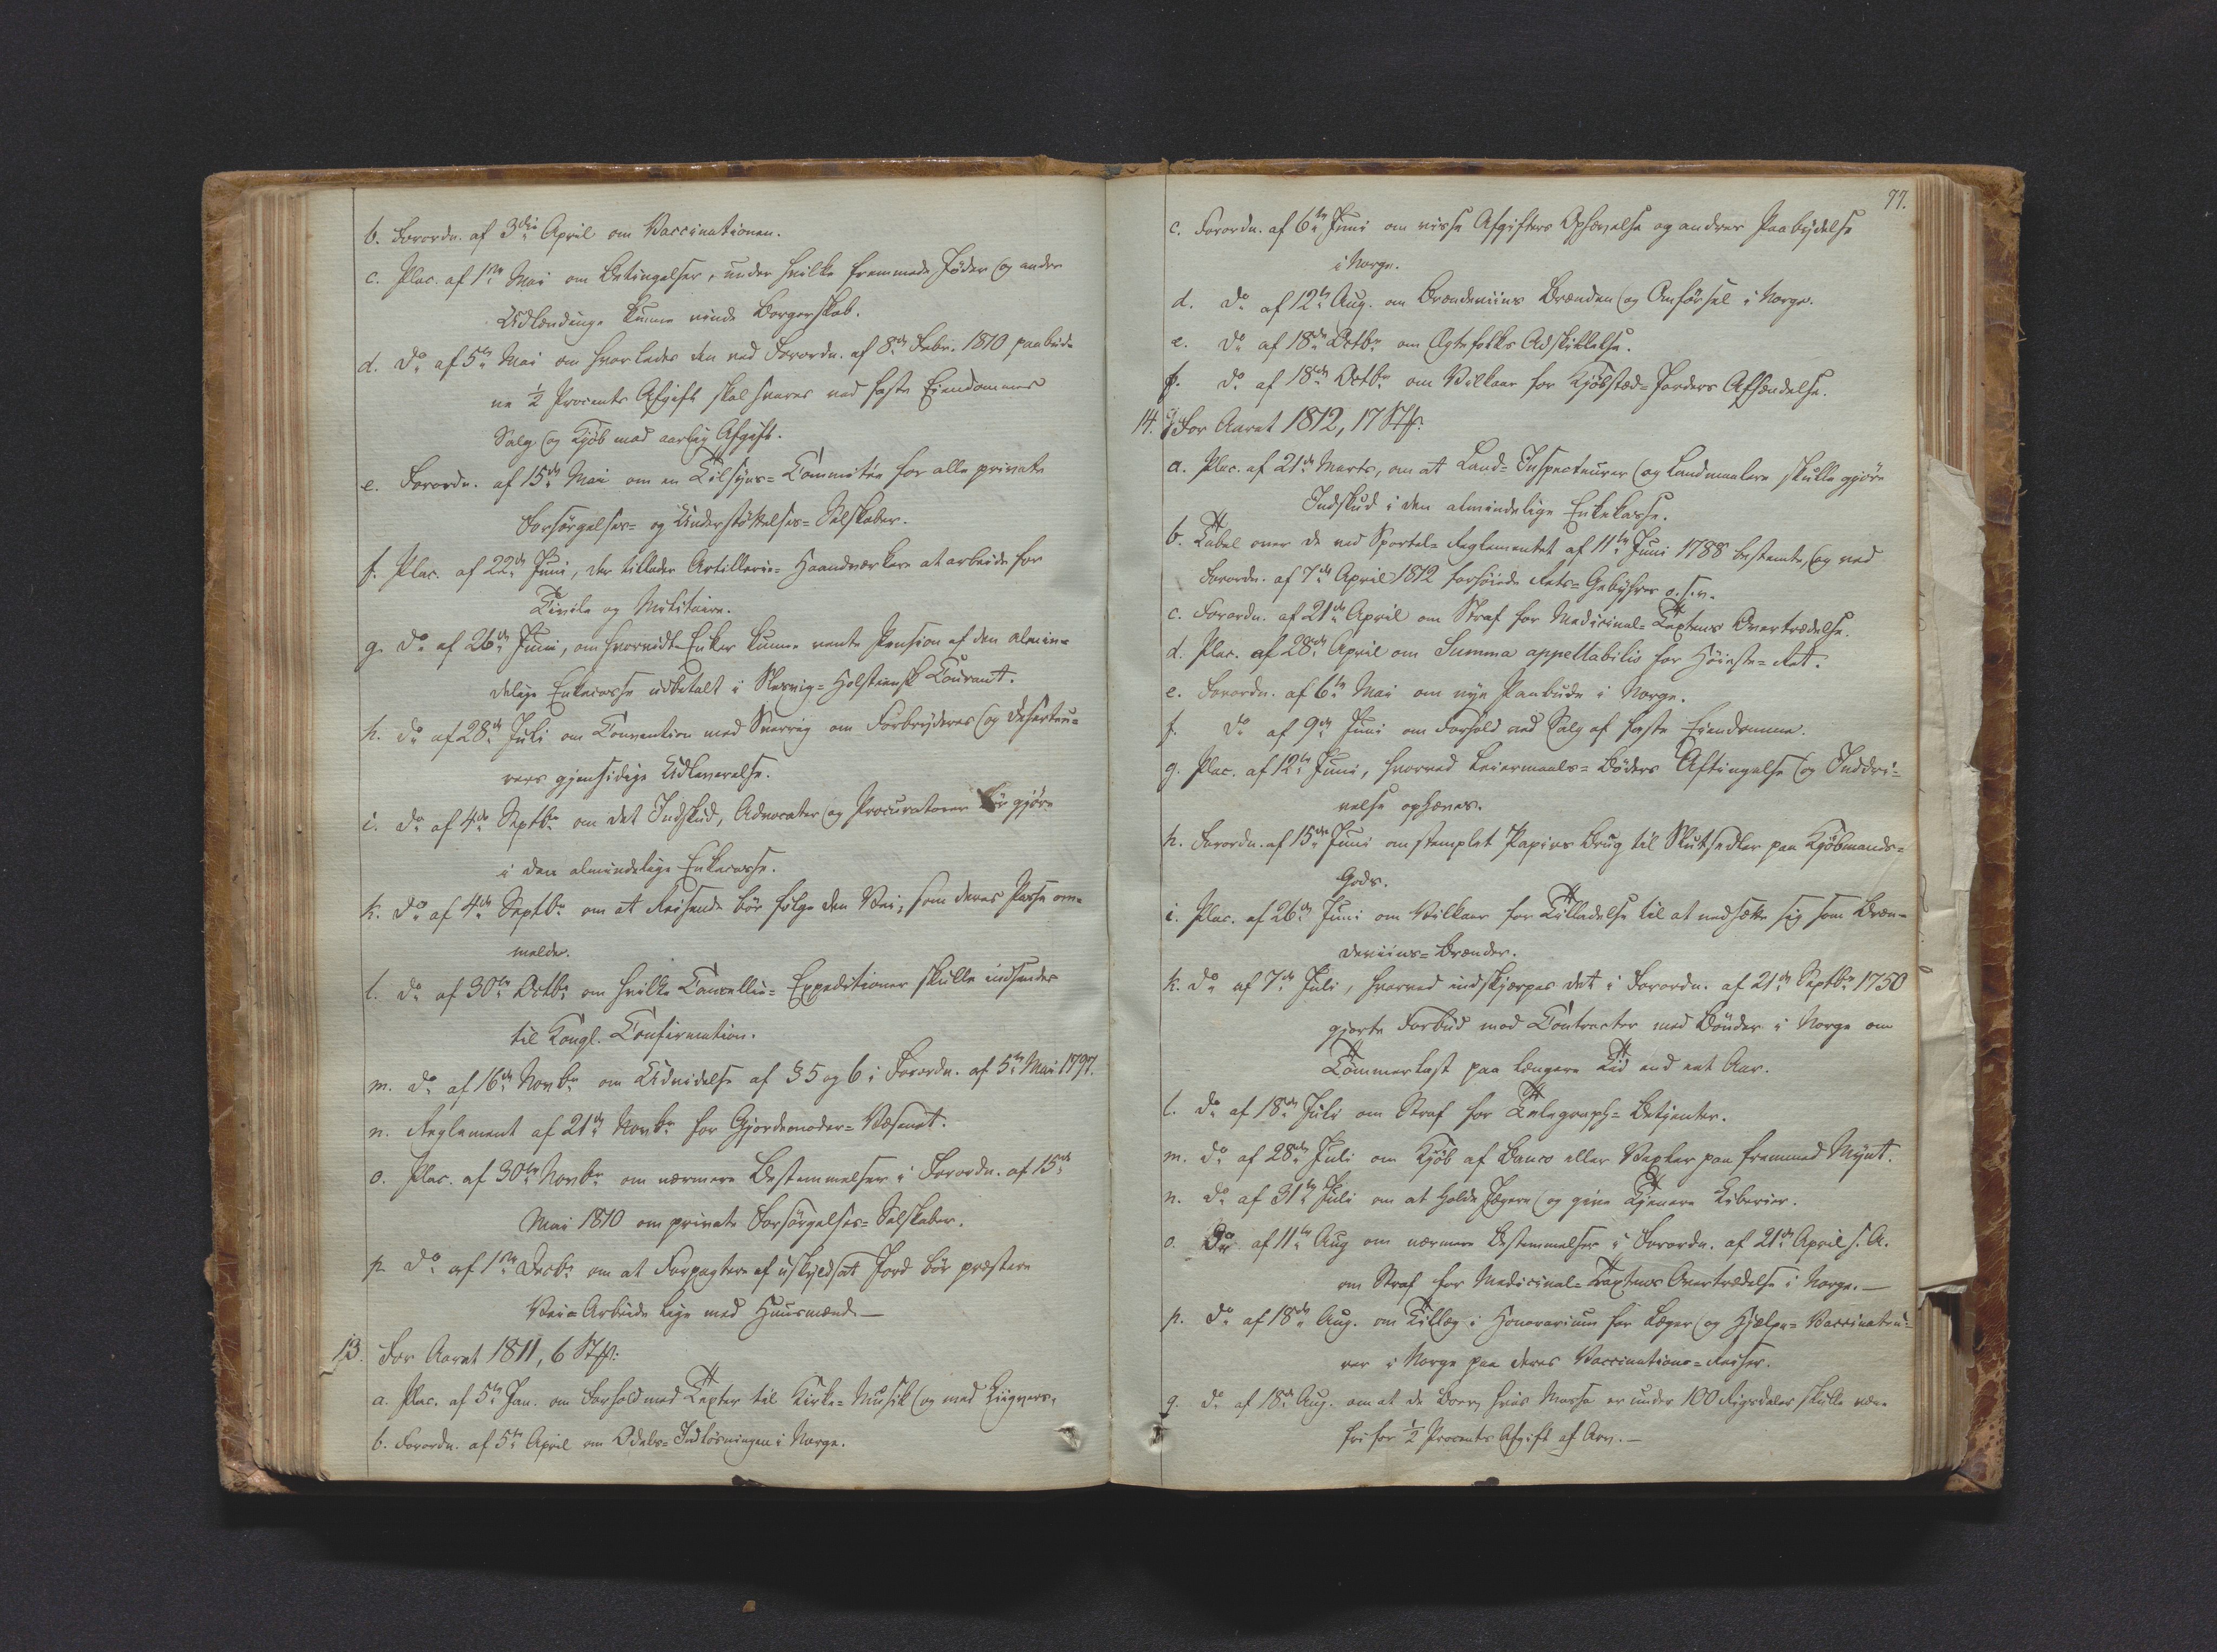 b. Forordn. af 3die April om Vaccinationen.
c. Plac. af 1ste Mai om Betingelser, under hvilke fremmede Jöder og andre
Udlændinge kunne vinde Borgerskab.
d. Do af 5te Mai om hvorledes den ved Forordn. af 8de Febr. 1810 paabud-
ne ½ Procents Afgift skal svares ved faste Eiendommes
Salg og Kjöb mod aarlig Afgift.
e. Forordn. af 15de Mai om en Tilsyns-Committée for alle private
Forsörgelses- og Understöttelses-Selskaber.
f. Plac. af 22de Juni, der tillader Artillerie-Haandværkere at arbeide for
Civile og Militaire.
g. Do af 26de Juni, om hvorvidt Enker kunne vente Pension af den almin-
delige Enkecasse udbetalt i Slesvig-Holsteensk Courant.
h. Do af 28de Juli om Convention med Sverrig om Forbryderes og Deserteu-
rers gjensidige Udleverelse.
i. Do af 4de Septbr om det Indskud, Advocater og Procuratorer bör gjöre
i den almindelige Enkecasse.
k. Do af 4de Septbr om at Reisende bör fölge den Vei, som deres Passe om-
melder.
l. Do af 30te Octbr om hvilke Cancellie-Expeditioner skulle indsendes
til Kongl. Confirmation.
m. Do af 16de Novbr om Udvidelse af § 5 og 6 i Forordn. af 5te Mai 1797.
n. Reglement af 21de Novbr for Gjordemoder-Væsenet.
o. Plac. af 30te Novbr om nærmere Bestemmelser i Forordn. af 15de
Mai 1810 om private Forsörgelses-Selskaber.
p. Do af 1ste Decbr om at Forpagtere af uskyldsat Jord bör præstere
Vei-Arbeide lige med Huusmænd.—
13. For Aaret 1811, 6 Stkr:
a. Plac. af 5te Jan. om Forhold med Texter til Kirke-Musik og med Liigvers.
b. Forordn. af 5te April om Odels-Indlösningen i Norge.
77.
c. Forordn. af 6te Juni om visse Afgifters Ophævelse og andres Paabydelse
i Norge.
d. Do af 12te Aug. om Brændeviins Brænden og Omförsel i Norge.
e. Do af 18de Octbr om Ægtefolks Adskillelse.
f. Do af 18de Octbr om Vilkaar for Kjöbstæd-Jorders Afhændelse.
14. For Aaret 1812, 17 Stkr:
a. Plac. af 21de Marts, om at Land-Inspecteurer og Landmaalere skulle gjöre
Indskud i den almindelige Enkekasse.
b. Tabel over de ved Sportel-Reglementet af 11te Juni 1788 bestemte, og ved
Forordn. af 7de April 1812 forhöiede Rets-Gebyhrer o.s.v.
c. Forordn. af 21de April om Straf for Medicinal-Taxtens Overtrædelse.
d. Plac. af 28de April om Summa appellabilis for Höieste-Ret.
e. Forordn. af 6te Mai om nye Paabude i Norge.
f. Do af 9de Juni om Forhold ved Salg af faste Eiendomme.
g. Plac. af 12te Juni, hvorved Leiermaals-Böders Aftingelse og Inddri-
velse ophæves.
h. Forordn. af 15de Juni om stemplet Papirs Brug til Slutsedler paa Kjöbmands-
Gods.
i. Plac. af 26de Juni om Vilkaar for Tilladelse til at nedsætte sig som Bræn-
deviins-Brænder.
k. Do af 7de Juli, hvorved indskjærpes det i Forordn. af 21de Septbr 1750
gjorte Forbud mod Contracter med Bönder i Norge om
Tömmerlast paa længere Tid end eet Aar.
l. Do af 18de Juli om Straf for Telegraph-Betjenter.
m. Do af 28de Juli om Kjöb af Banco eller Vexler paa fremmed Mynt.
n. Do af 31te Juli om at holde Jægere og give Tjenere Liberier.
o. Do af 11te Aug om nærmere Bestemmelser i Forordn. af 21de April s. A.
om Straf for Medicinal-Taxtens Overtrædelse i Norge.—
p. Do af 18de Aug. om Tillæg i Honorarium for Læger og Hjelpe-Vaccinateu-
rer i Norge paa deres Vaccinations-Reiser.
q. Do af 18de Aug. om at de Boer, hvis Masse er under 100 Rigsdaler skulle være
fri for ½ Procents Afgift af Arv.—